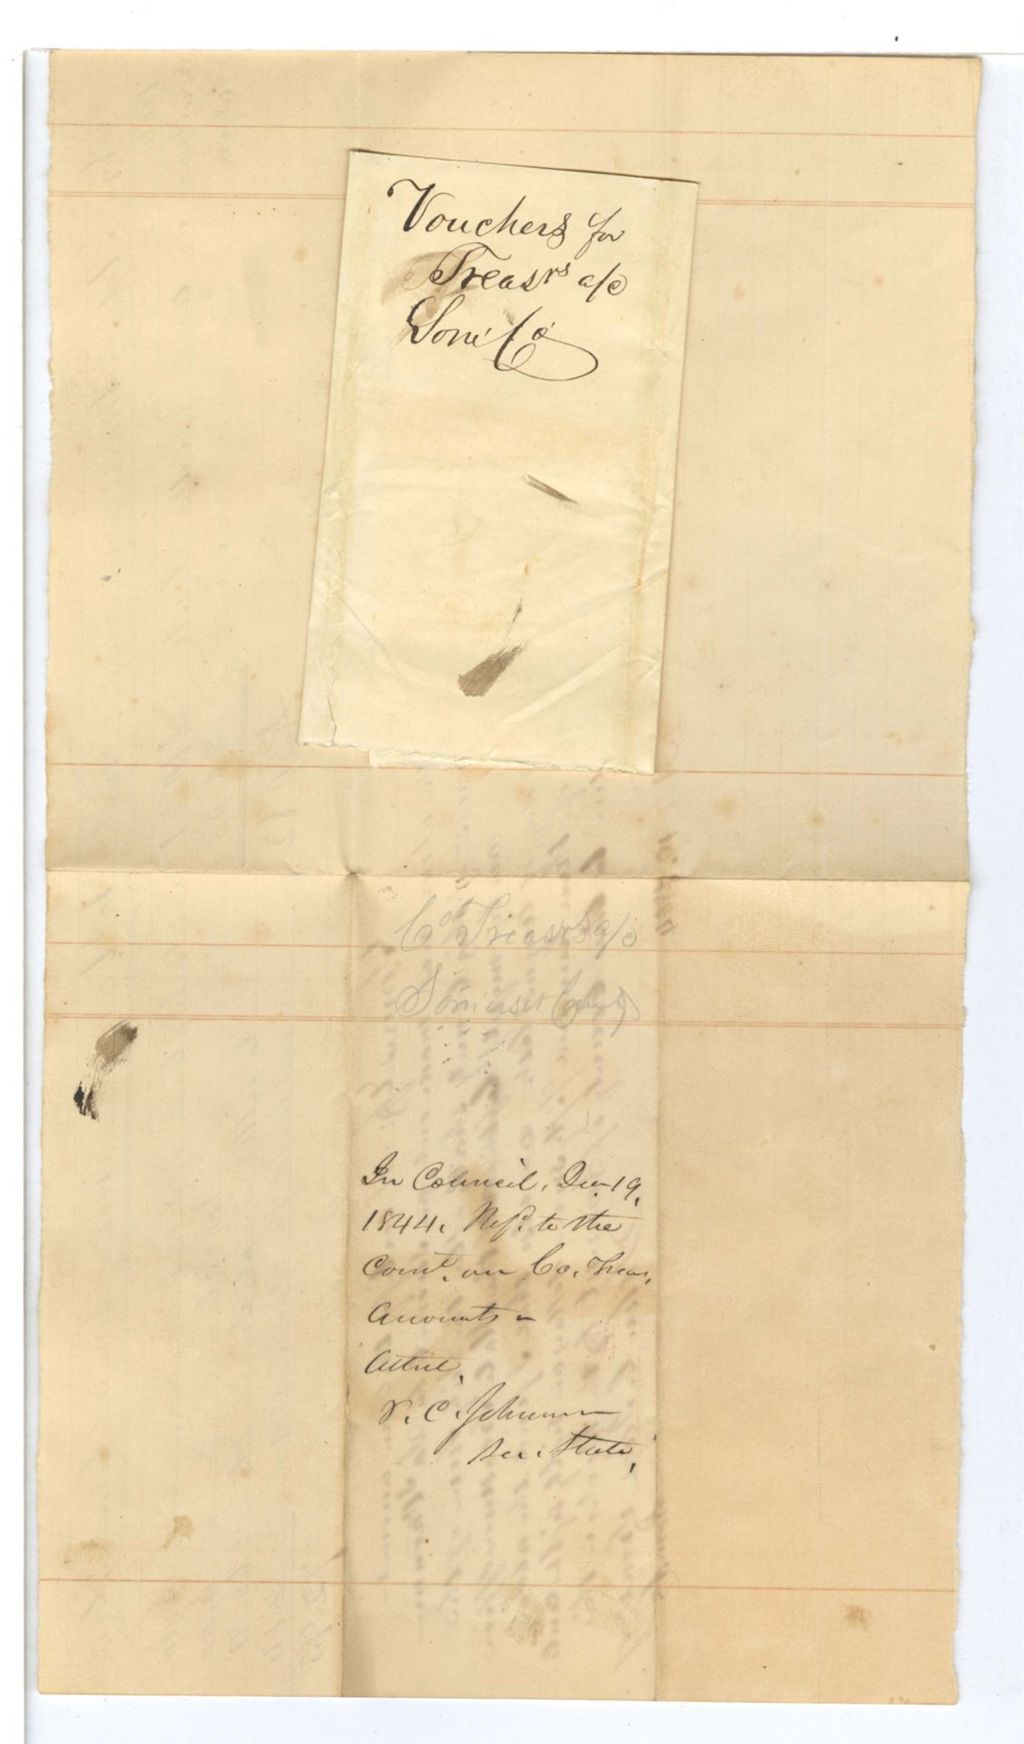 Vouchers for
Treasrs a/c
Som. Co
Co Treasrs a/c
Somerset County
In Council, Dec. 19,
1844. Refd. to the
Comt. on Co. Treas,
Accounts –
Attest,
P. C. Johnson
Sec. State,